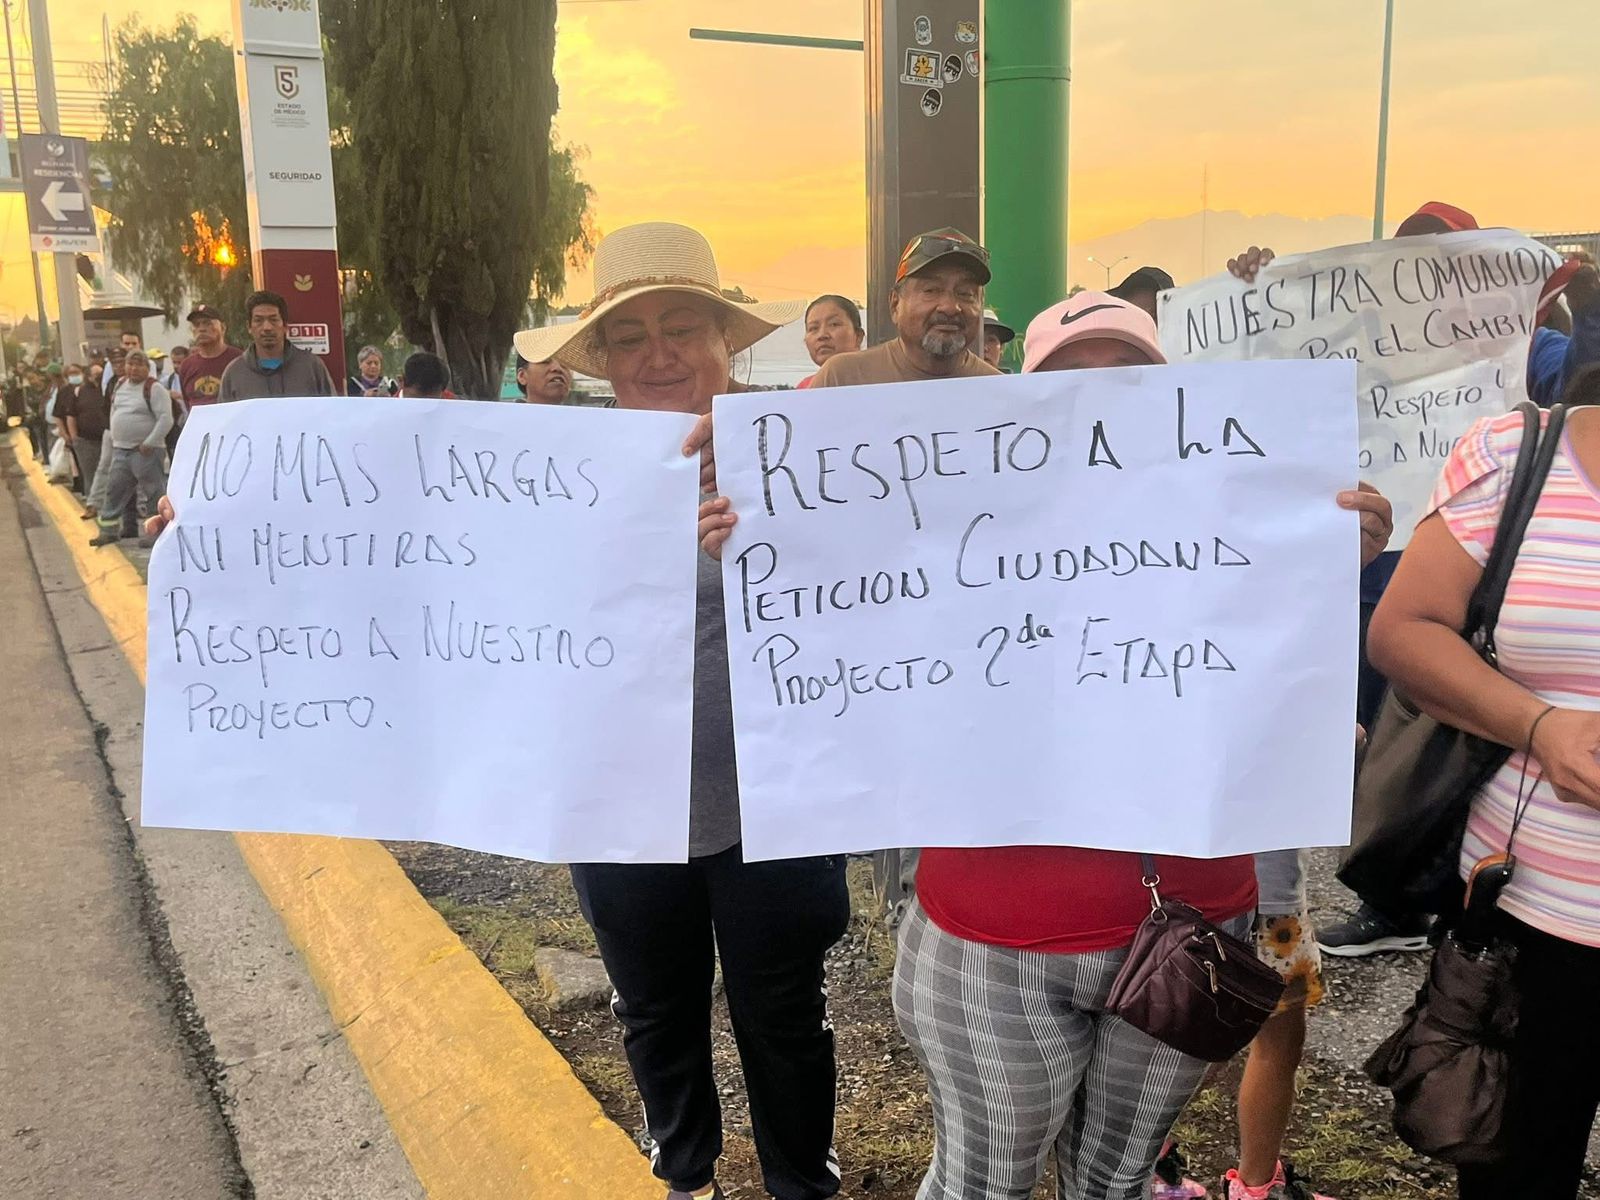 5
ESTADO
DE MÉXICO
SEGURIDAD
RESIDENCIAS
911
NO MAS LARGAS
NI MENTIRAS
RESPETO A NUESTRO
PROYECTO.
RESPETO A LA
PETICION CIUDADANA
PROYECTO 2da ETAPA
NUESTRA COMUNIDA
POR EL CAMBI
RESPETO
A NU